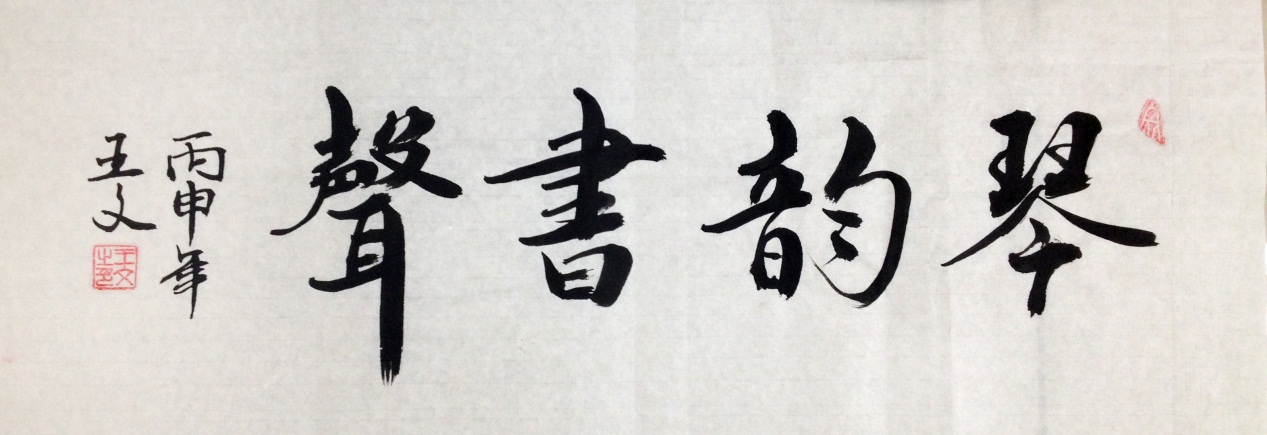 琴韵書聲
丙申年
王文
王文之印